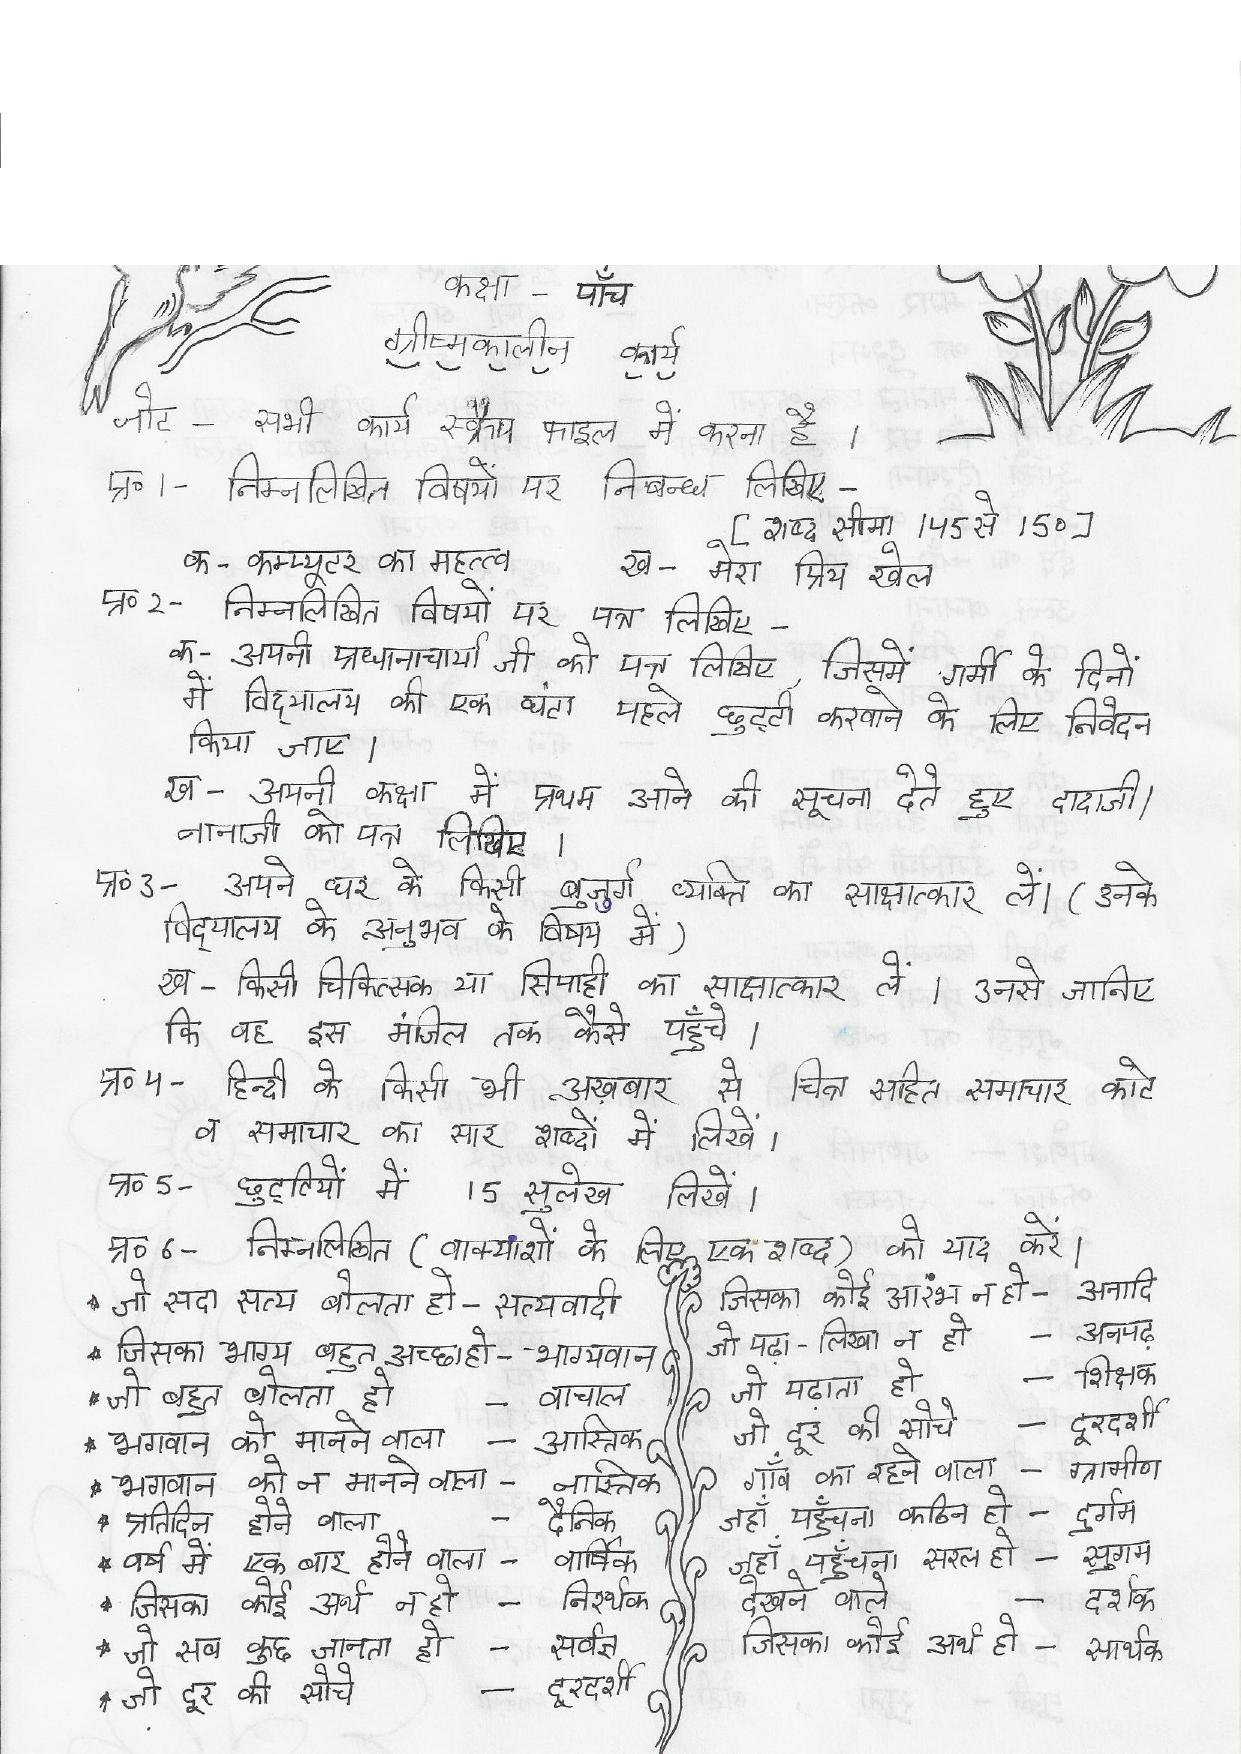 कक्षा - पाँच
ग्रीष्मकालीन कार्य
नोट - सभी कार्य स्क्रैप फाइल में करना है ।
प्र॰ 1- निम्नलिखित विषयों पर निबन्ध लिखिए -
[ शब्द सीमा 145 से 150 ]
क - कम्प्यूटर का महत्त्व ख - मेरा प्रिय खेल
प्र॰ 2- निम्नलिखित विषयों पर पत्र लिखिए -
क- अपनी प्रधानाचार्या जी को पत्र लिखिए, जिसमें गर्मी के दिनों
में विद्यालय की एक घंटा पहले छुट्टी करवाने के लिए निवेदन
किया जाए ।
ख - अपनी कक्षा में प्रथम आने की सूचना देते हुए दादाजी/
नानाजी को पत्र लिखिए ।
प्र॰ 3- अपने घर के किसी बुजुर्ग व्यक्ति का साक्षात्कार लें। ( उनके
विद्यालय के अनुभव के विषय में )
ख - किसी चिकित्सक या सिपाही का साक्षात्कार लें । उनसे जानिए
कि वह इस मंजिल तक कैसे पहुँचे ।
प्र॰ 4- हिन्दी के किसी भी अख़बार से चित्र सहित समाचार काटे
व समाचार का सार शब्दों में लिखें ।
प्र॰ 5- छुट्टियों में 15 सुलेख लिखें ।
प्र॰ 6- निम्नलिखित ( वाक्यांशों के लिए एक शब्द ) को याद करें ।
* जो सदा सत्य बोलता हो - सत्यवादी
* जिसका भाग्य बहुत अच्छा हो - भाग्यवान
* जो बहुत बोलता हो - वाचाल
* भगवान को मानने वाला - आस्तिक
* भगवान को न मानने वाला - नास्तिक
* प्रतिदिन होने वाला - दैनिक
* वर्ष में एक बार होने वाला - वार्षिक
* जिसका कोई अर्थ न हो - निरर्थक
* जो सब कुछ जानता हो - सर्वज्ञ
* जो दूर की सोचे - दूरदर्शी
जिसका कोई आरंभ न हो - अनादि
जो पढ़ा - लिखा न हो - अनपढ़
जो पढ़ाता हो - शिक्षक
जो दूर की सोचे - दूरदर्शी
गाँव का रहने वाला - ग्रामीण
जहाँ पहुँचना कठिन हो - दुर्गम
जहाँ पहुँचना सरल हो - सुगम
देखने वाले - दर्शक
जिसका कोई अर्थ हो - सार्थक